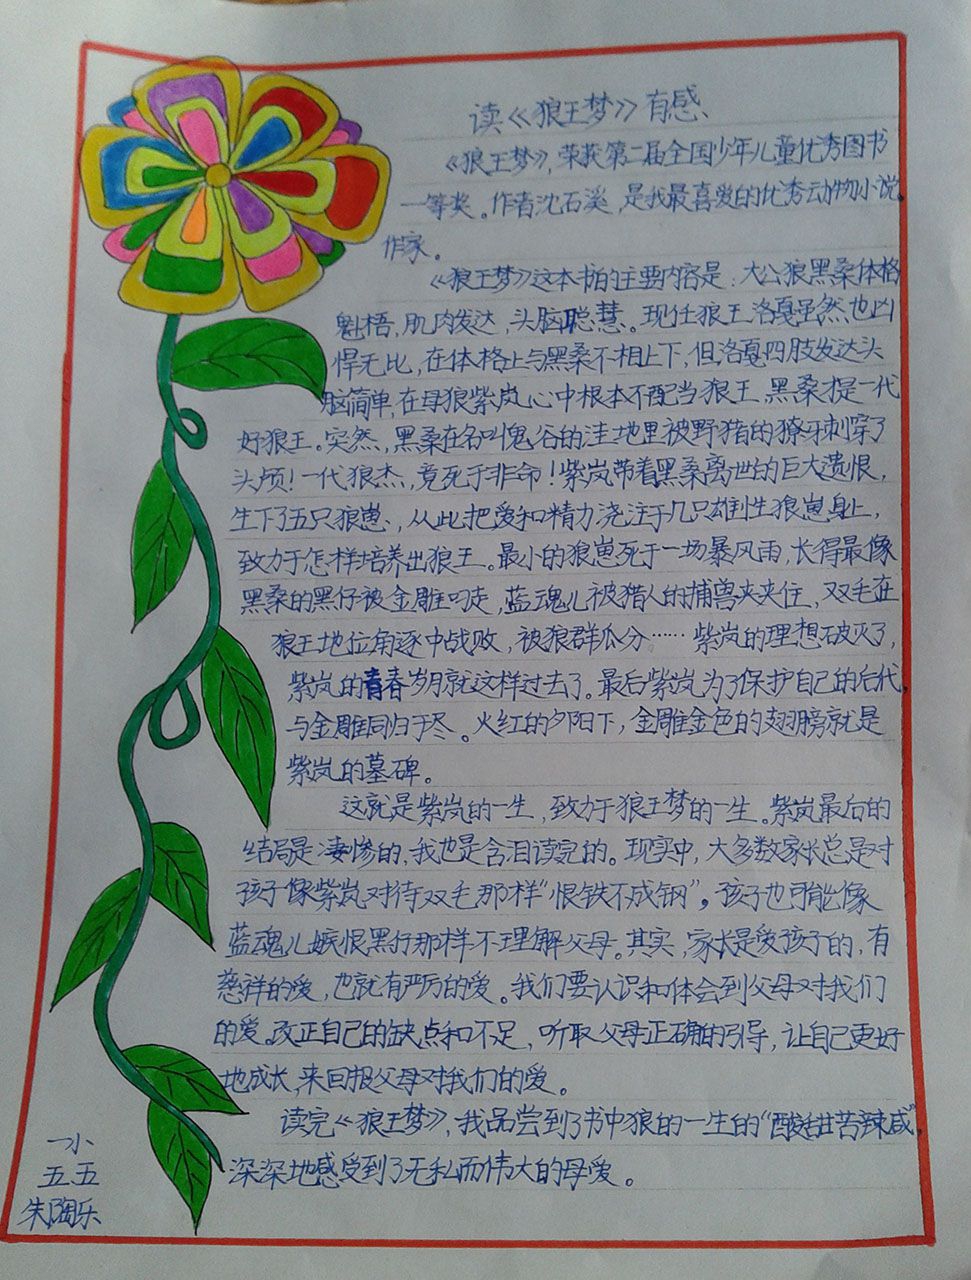 读《狼王梦》有感
《狼王梦》,荣获第二届全国少年儿童优秀图书
一等奖。作者沈石溪,是我最喜爱的优秀动物小说
作家。
《狼王梦》这本书的主要内容是:大公狼黑桑体格
魁梧,肌肉发达,头脑聪慧。现任狼王洛戛虽然也凶
悍无比,在体格上与黑桑不相上下,但洛戛四肢发达头
脑简单,在母狼紫岚心中根本不配当狼王,黑桑才是一代
好狼王。突然,黑桑在名叫鬼谷的洼地里被野猪的獠牙刺穿了
头颅!一代狼杰,竟死于非命!紫岚带着黑桑离世的巨大遗恨,
生下了五只狼崽,从此把爱和精力浇注于几只雄性狼崽身上,
致力于怎样培养出狼王。最小的狼崽死于一场暴风雨,长得最像
黑桑的黑仔被金雕叼走,蓝魂儿被猎人的捕兽夹夹住,双毛在
狼王地位角逐中战败,被狼群瓜分……紫岚的理想破灭了,
紫岚的青春岁月就这样过去了。最后紫岚为了保护自己的后代,
与金雕同归于尽。火红的夕阳下,金雕金色的翅膀就是
紫岚的墓碑。
这就是紫岚的一生,致力于狼王梦的一生。紫岚最后的
结局是凄惨的,我也是含泪读完的。现实中,大多数家长总是对
孩子像紫岚对待双毛那样“恨铁不成钢”。孩子也可能像
蓝魂儿嫉恨黑仔那样不理解父母。其实,家长是爱孩子的,有
慈祥的爱,也就有严厉的爱。我们要认识和体会到父母对我们
的爱。改正自己的缺点和不足,听取父母正确的引导,让自己更好
地成长,来回报父母对我们的爱。
读完《狼王梦》,我品尝到了书中狼的一生的“酸甜苦辣咸”,
深深地感受到了无私而伟大的母爱。
一小
五.五
朱陶乐